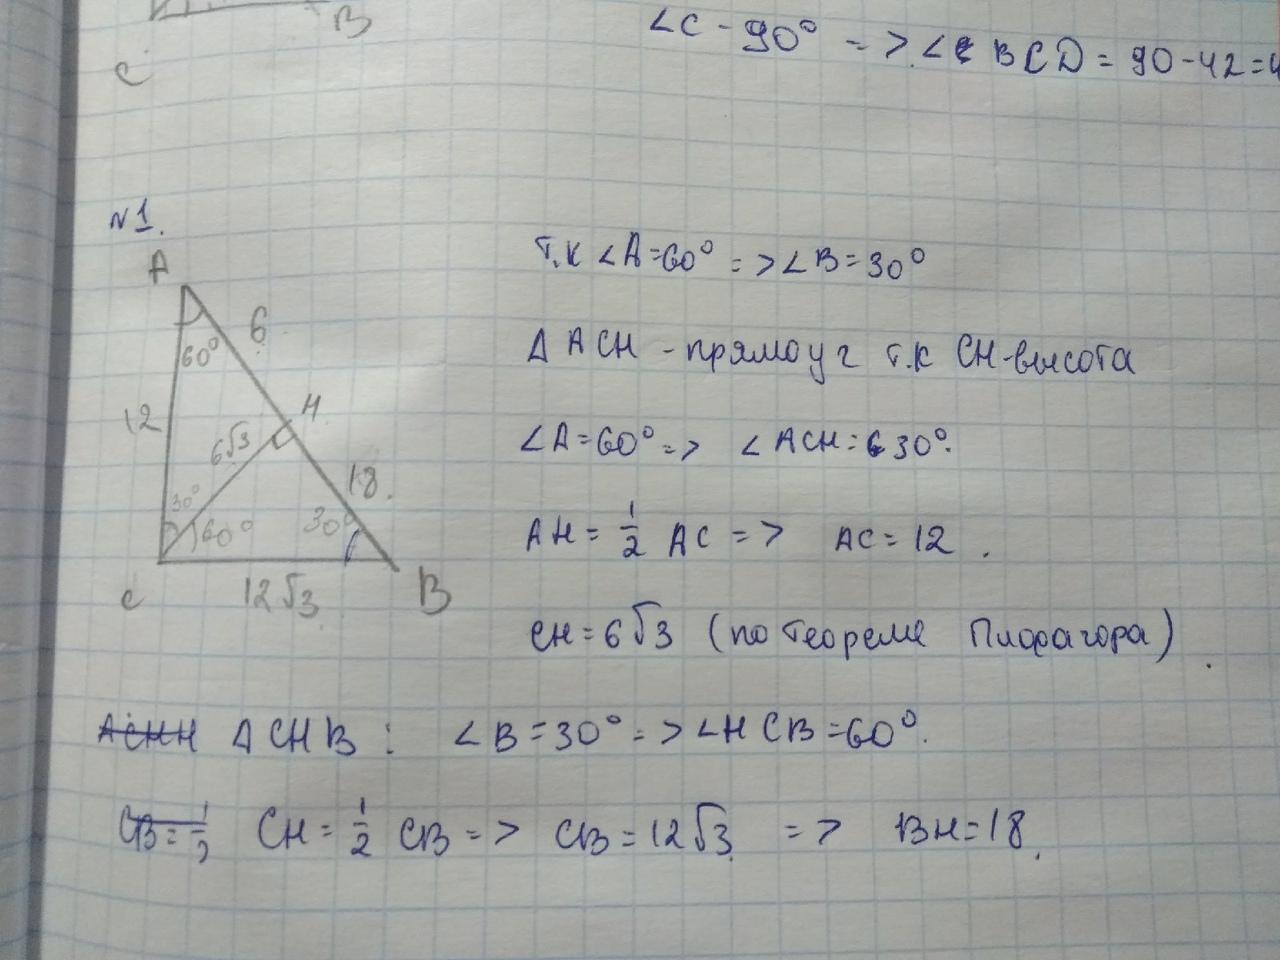 B
C
∠C - 90° => ∠BCD = 90-42=4
N1.
A
60°
6
12
H
6√3
18.
30°
60°
30°
C
12√3
B
т.к ∠A=60° => ∠B=30°
Δ ACH - прямоуг т.к CH-высота
∠A=60° => ∠ACH=30°.
AH = 1/2 AC => AC = 12 .
CH = 6√3 (по теореме Пифагора) .
ACHH Δ CHB : ∠B=30° => ∠HCB=60°.
CB = 1/2 CH = 1/2 CB => CB = 12√3 => BH=18.